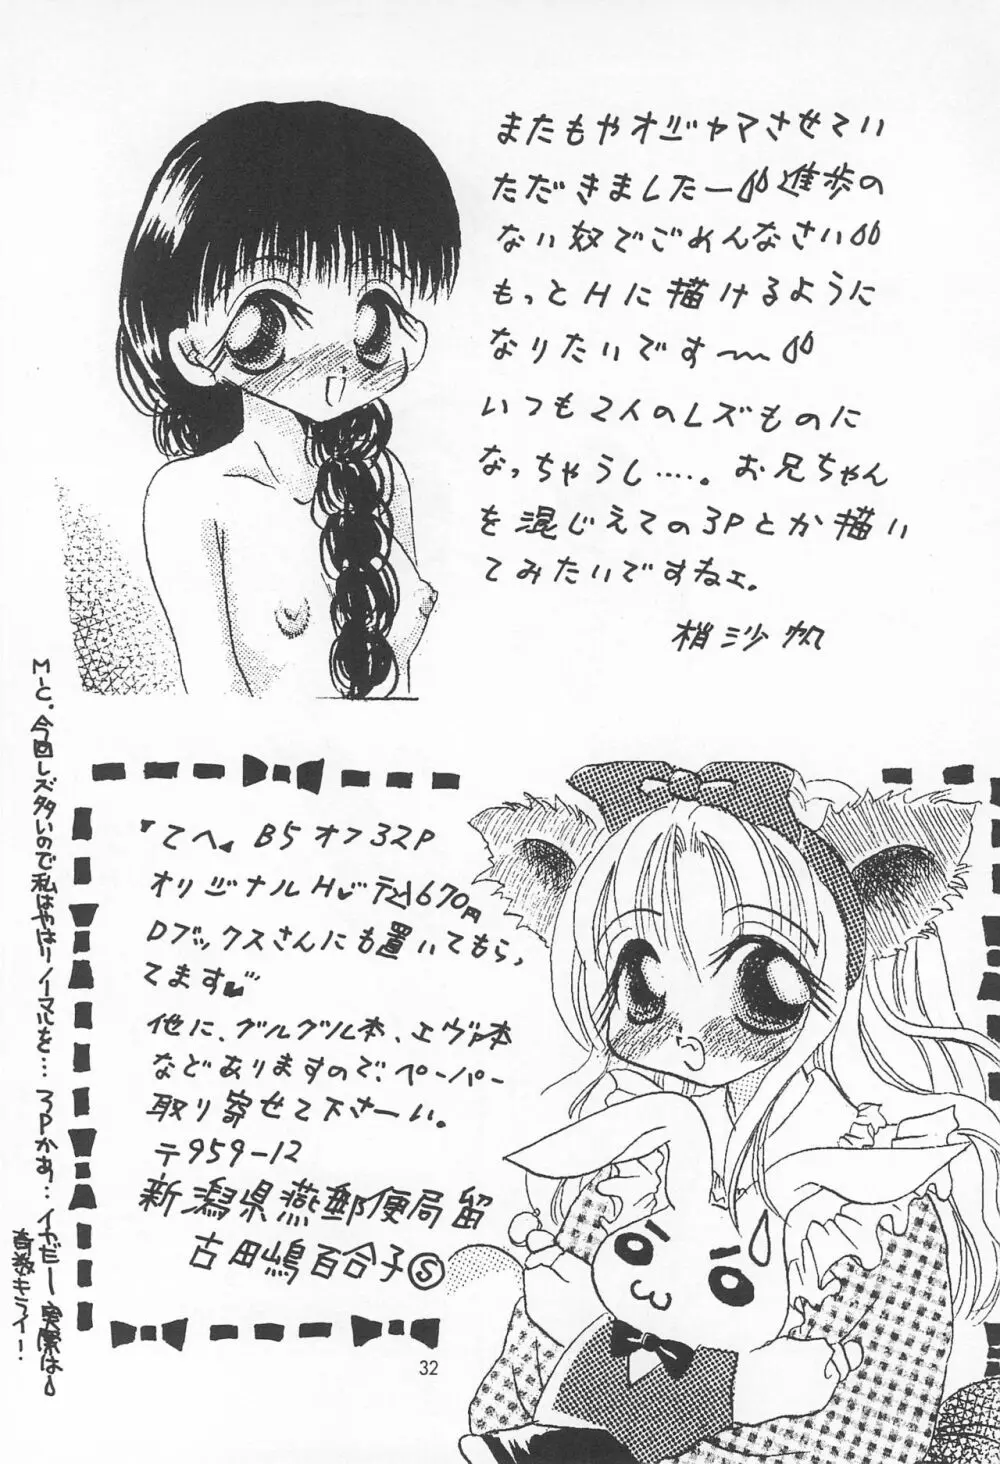 またもやオジャマさせてい
ただきましたー 進歩の
ない奴でごめんなさい
もっとHに描けるように
なりたいです〜
いつも2人のレズものに
なっちゃうし……。お兄ちゃん
を混じえての3Pとか描い
てみたいですねェ。
梢沙帆
M-C。今回レズ多いので私はやはりノーマルを… 3Pかぁ… イヤだー 実際は
奇数キライ!
「てへ」B5オフ32P
オリジナルH 〒込670円
Dブックスさんにも置いてもらっ
てます
他に、グルグル本、エヴァ本
などありますので、ペーパー
取り寄せて下さーい。
〒959-12
新潟県燕郵便局留
古田嶋百合子Ⓢ
32